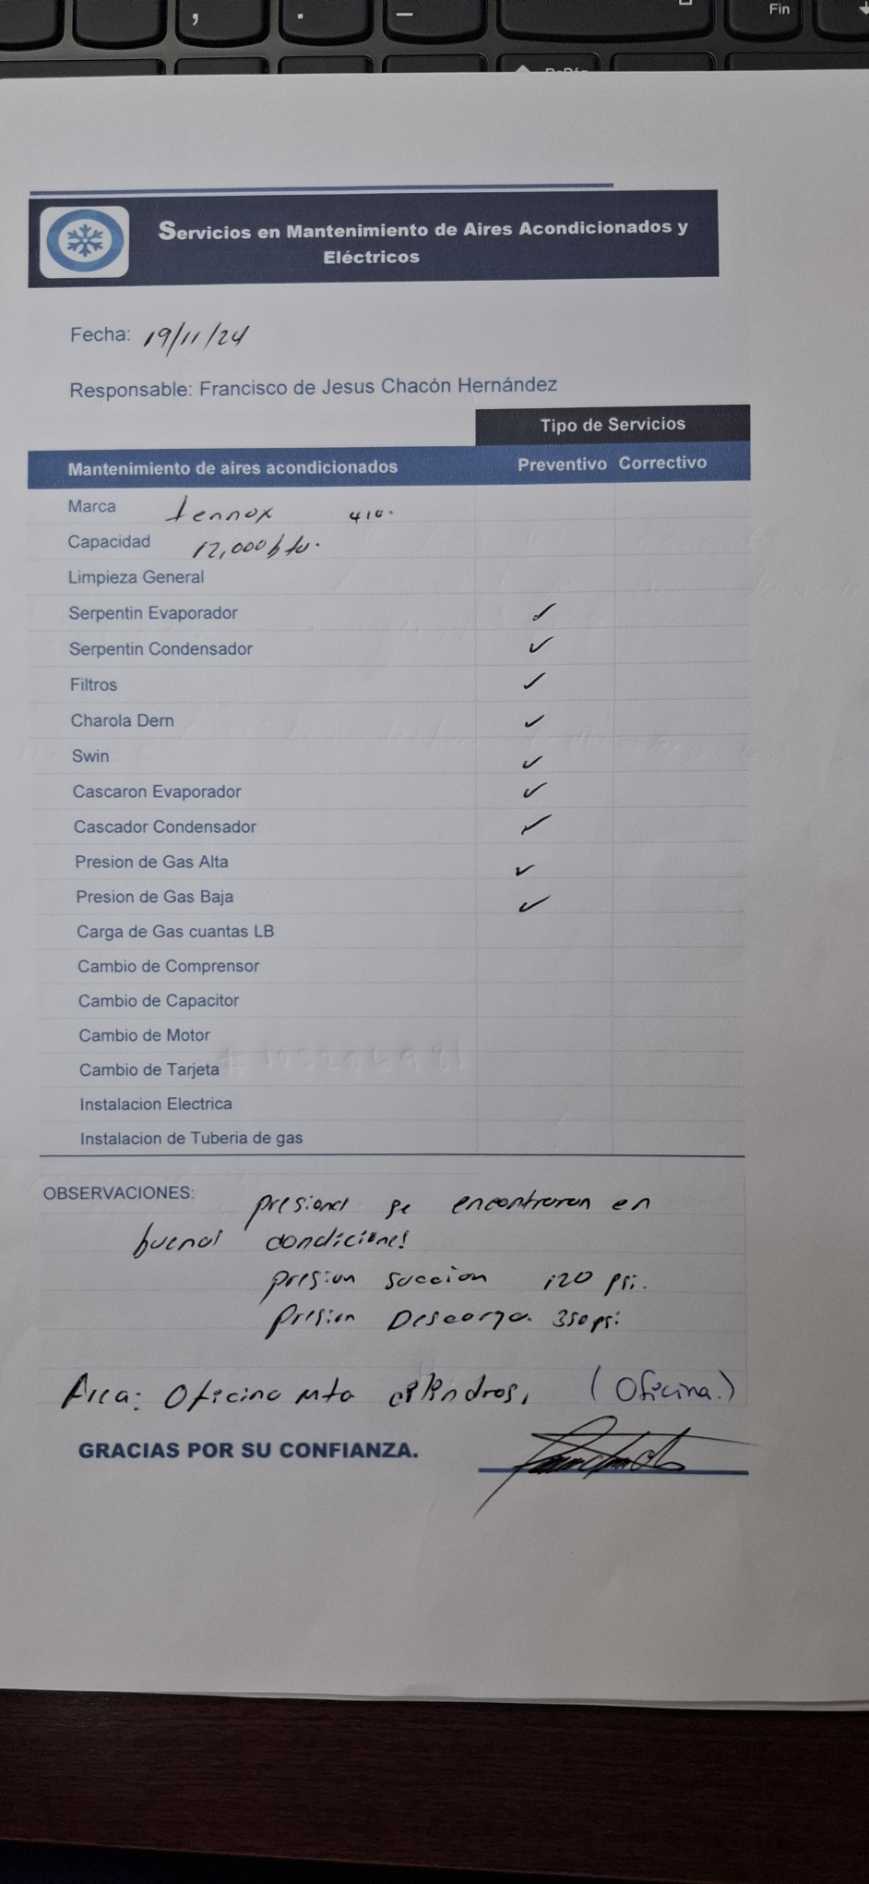 , . _ Fin
Servicios en Mantenimiento de Aires Acondicionados y
Eléctricos
Fecha: 19/11/24
Responsable: Francisco de Jesus Chacón Hernández
Tipo de Servicios
Mantenimiento de aires acondicionados Preventivo Correctivo
Marca Lennox 410.
Capacidad 12,000 btu.
Limpieza General
Serpentin Evaporador ✓
Serpentin Condensador ✓
Filtros ✓
Charola Dern ✓
Swin ✓
Cascaron Evaporador ✓
Cascador Condensador ✓
Presion de Gas Alta ✓
Presion de Gas Baja ✓
Carga de Gas cuantas LB
Cambio de Comprensor
Cambio de Capacitor
Cambio de Motor
Cambio de Tarjeta
Instalacion Electrica
Instalacion de Tuberia de gas
OBSERVACIONES: presiones se encontraron en
buenas condiciones
presion succion 120 psi.
Presion Descarga. 350 psi
Area: Oficina mto cilindros, (Oficina.)
GRACIAS POR SU CONFIANZA.